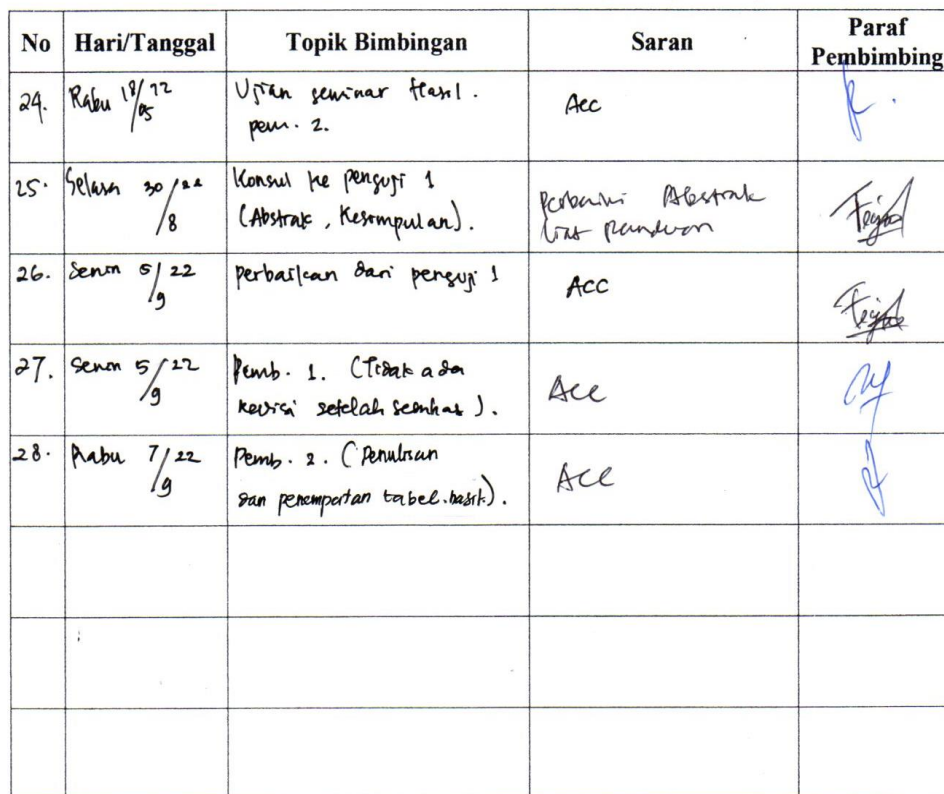 No Hari/Tanggal Topik Bimbingan Saran Paraf Pembimbing
24. Rabu 18/22 Ujian seminar Hasil. Acc
/05 pem. 2.
25. Selasa 30/22 Konsul ke penguji 1
/8 (Abstrak, Kesimpulan). Perbaiki Abstrak
liat panduan
26. Senin 5/22 perbaikan dari penguji 1 ACC
/9
27. Senin 5/22 Pemb. 1. (Tidak ada Acc
/9 revisi setelah semhas).
28. Rabu 7/22 Pemb. 2. (Penulisan Acc
/9 dan penempatan tabel.hasil).